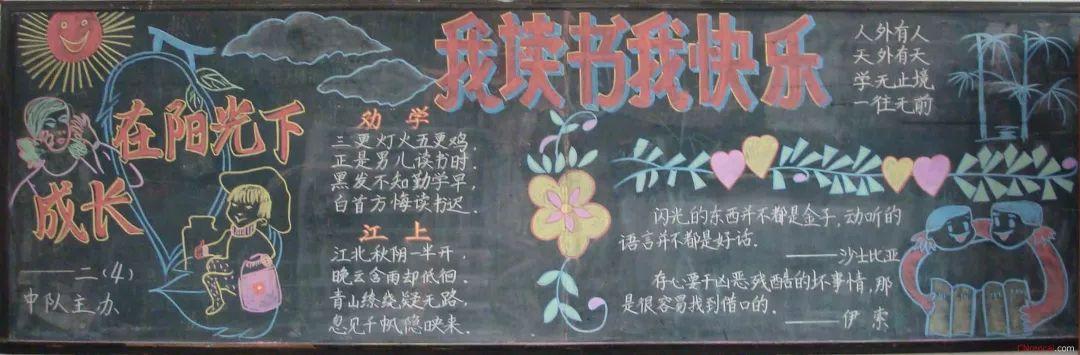 我读书我快乐
在阳光下
成长
——二(4)
中队主办
劝学
三更灯火五更鸡,
正是男儿读书时.
黑发不知勤学早,
白首方悔读书迟.
江上
江北秋阴一半开,
晚云含雨却低徊.
青山缭绕疑无路,
忽见千帆隐映来.
人外有人
天外有天
学无止境
一往无前
闪光的东西并不都是金子,动听的
语言并不都是好话.
——沙士比亚
存心要干凶恶残酷的坏事情,那
是很容易找到借口的.
——伊索
CNrencai.com